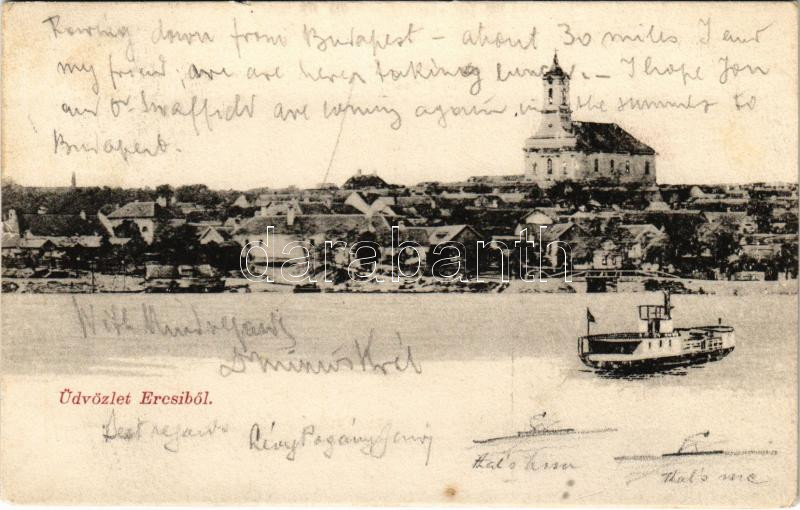 Rowing down from Budapest – about 30 miles I and
my friend, are are here taking lunch. – I hope You
and are coming again in the summer to
Budapest.
darabanth
With kind regards
Üdvözlet Ercsiből.
Best regards
that's
that's me